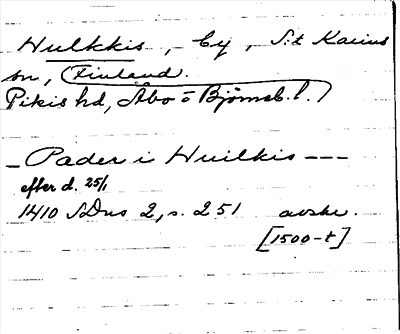 Hulkkis, by, S:t Karins
sn, (Finland.
Pikis hd, Åbo o Björneb. l.)
– Pader i Huilkis – – –
efter d. 25/1
1410 SDns 2, s. 251 avskr.
[1500-t]